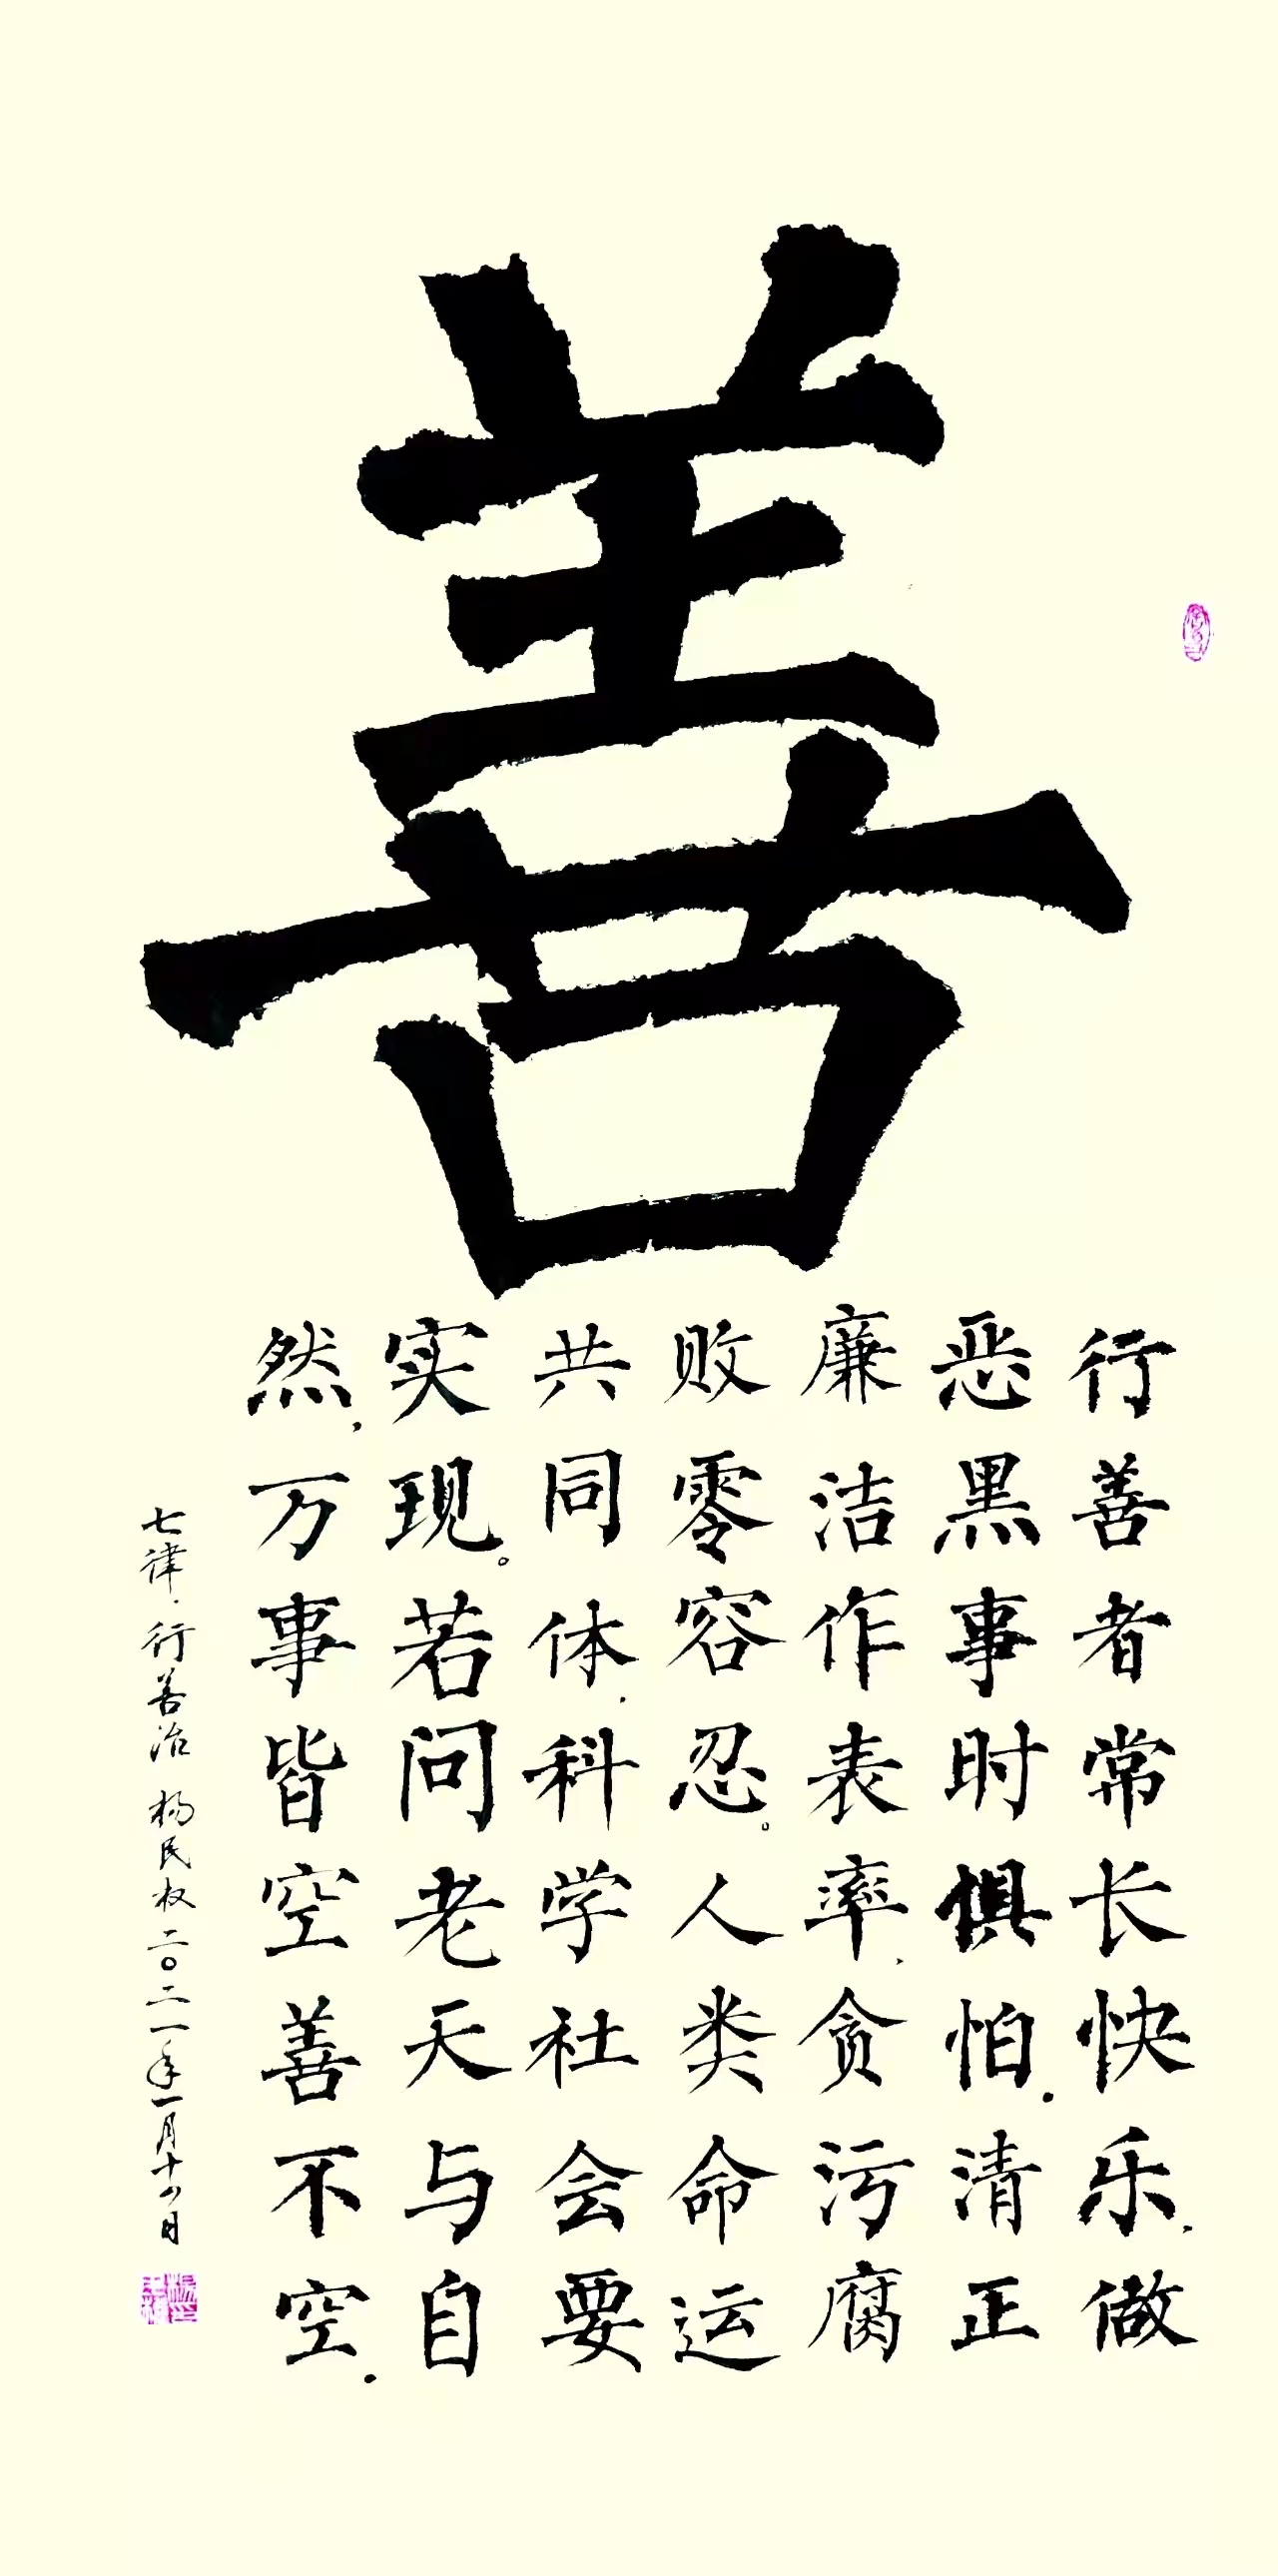 善
行善者常长快乐，做
恶黑事时惧怕。清正
廉洁作表率，贪污腐
败零容忍。人类命运
共同体，科学社会要
实现。若问老天与自
然，万事皆空善不空。
七律·行善治 杨民权 二〇二一年一月十八日